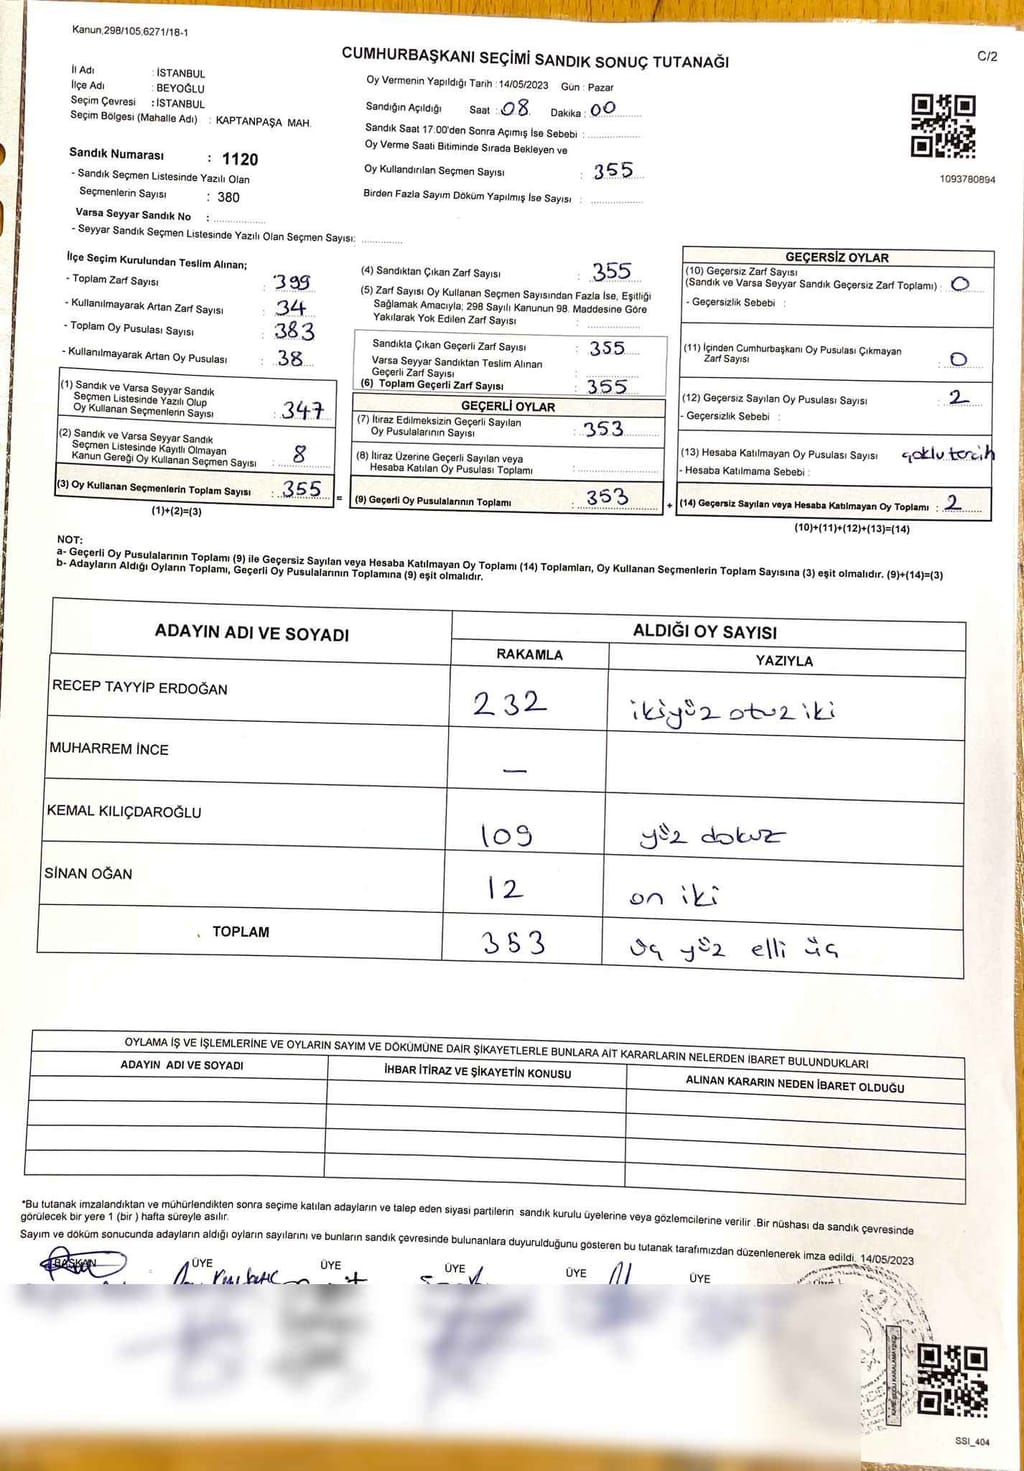 Kanun,298/105,6271/18-1
CUMHURBAŞKANI SEÇİMİ SANDIK SONUÇ TUTANAĞI
C/2
İl Adı : İSTANBUL
İlçe Adı : BEYOĞLU
Seçim Çevresi : İSTANBUL
Seçim Bölgesi (Mahalle Adı) : KAPTANPAŞA MAH.
Oy Vermenin Yapıldığı Tarih : 14/05/2023 Gün : Pazar
Sandığın Açıldığı Saat : 08 Dakika : 00
Sandık Saat 17:00'den Sonra Açımış İse Sebebi :
Oy Verme Saati Bitiminde Sırada Bekleyen ve
Oy Kullandırılan Seçmen Sayısı : 355
Birden Fazla Sayım Döküm Yapılmış İse Sayısı :
1093780894
Sandık Numarası : 1120
- Sandık Seçmen Listesinde Yazılı Olan
Seçmenlerin Sayısı : 380
Varsa Seyyar Sandık No :
- Seyyar Sandık Seçmen Listesinde Yazılı Olan Seçmen Sayısı:
İlçe Seçim Kurulundan Teslim Alınan;
- Toplam Zarf Sayısı : 399
- Kullanılmayarak Artan Zarf Sayısı : 34
- Toplam Oy Pusulası Sayısı : 383
- Kullanılmayarak Artan Oy Pusulası : 38
(1) Sandık ve Varsa Seyyar Sandık
Seçmen Listesinde Yazılı Olup
Oy Kullanan Seçmenlerin Sayısı : 347
(2) Sandık ve Varsa Seyyar Sandık
Seçmen Listesinde Kayıtlı Olmayan
Kanun Gereği Oy Kullanan Seçmen Sayısı : 8
(3) Oy Kullanan Seçmenlerin Toplam Sayısı : 355 =
(1)+(2)=(3)
(4) Sandıktan Çıkan Zarf Sayısı : 355
(5) Zarf Sayısı Oy Kullanan Seçmen Sayısından Fazla İse, Eşitliği
Sağlamak Amacıyla; 298 Sayılı Kanunun 98. Maddesine Göre
Yakılarak Yok Edilen Zarf Sayısı :
Sandıkta Çıkan Geçerli Zarf Sayısı : 355
Varsa Seyyar Sandıktan Teslim Alınan
Geçerli Zarf Sayısı :
(6) Toplam Geçerli Zarf Sayısı : 355
GEÇERLİ OYLAR
(7) İtiraz Edilmeksizin Geçerli Sayılan
Oy Pusulalarının Sayısı : 353
(8) İtiraz Üzerine Geçerli Sayılan veya
Hesaba Katılan Oy Pusulası Toplamı :
(9) Geçerli Oy Pusulalarının Toplamı : 353 +
GEÇERSİZ OYLAR
(10) Geçersiz Zarf Sayısı
(Sandık ve Varsa Seyyar Sandık Geçersiz Zarf Toplamı) : 0
- Geçersizlik Sebebi :
(11) İçinden Cumhurbaşkanı Oy Pusulası Çıkmayan
Zarf Sayısı : 0
(12) Geçersiz Sayılan Oy Pusulası Sayısı : 2
- Geçersizlik Sebebi :
(13) Hesaba Katılmayan Oy Pusulası Sayısı : çoklu tercih
- Hesaba Katılmama Sebebi :
(14) Geçersiz Sayılan veya Hesaba Katılmayan Oy Toplamı : 2
(10)+(11)+(12)+(13)=(14)
NOT:
a- Geçerli Oy Pusulalarının Toplamı (9) ile Geçersiz Sayılan veya Hesaba Katılmayan Oy Toplamı (14) Toplamları, Oy Kullanan Seçmenlerin Toplam Sayısına (3) eşit olmalıdır. (9)+(14)=(3)
b- Adayların Aldığı Oyların Toplamı, Geçerli Oy Pusulalarının Toplamına (9) eşit olmalıdır.
ADAYIN ADI VE SOYADI
ALDIĞI OY SAYISI
RAKAMLA YAZIYLA
RECEP TAYYİP ERDOĞAN 232 ikiyüz otuz iki
MUHARREM İNCE —
KEMAL KILIÇDAROĞLU 109 yüz dokuz
SİNAN OĞAN 12 on iki
TOPLAM 353 üç yüz elli üç
OYLAMA İŞ VE İŞLEMLERİNE VE OYLARIN SAYIM VE DÖKÜMÜNE DAİR ŞİKAYETLERLE BUNLARA AİT KARARLARIN NELERDEN İBARET BULUNDUKLARI
ADAYIN ADI VE SOYADI İHBAR İTİRAZ VE ŞİKAYETİN KONUSU ALINAN KARARIN NEDEN İBARET OLDUĞU
*Bu tutanak imzalandıktan ve mühürlendikten sonra seçime katılan adayların ve talep eden siyasi partilerin sandık kurulu üyelerine veya gözlemcilerine verilir .Bir nüshası da sandık çevresinde
görülecek bir yere 1 (bir ) hafta süreyle asılır.
Sayım ve döküm sonucunda adayların aldığı oyların sayılarını ve bunların sandık çevresinde bulunanlara duyurulduğunu gösteren bu tutanak tarafımızdan düzenlenerek imza edildi. 14/05/2023
BAŞKAN ÜYE ÜYE ÜYE ÜYE ÜYE
SSI_404